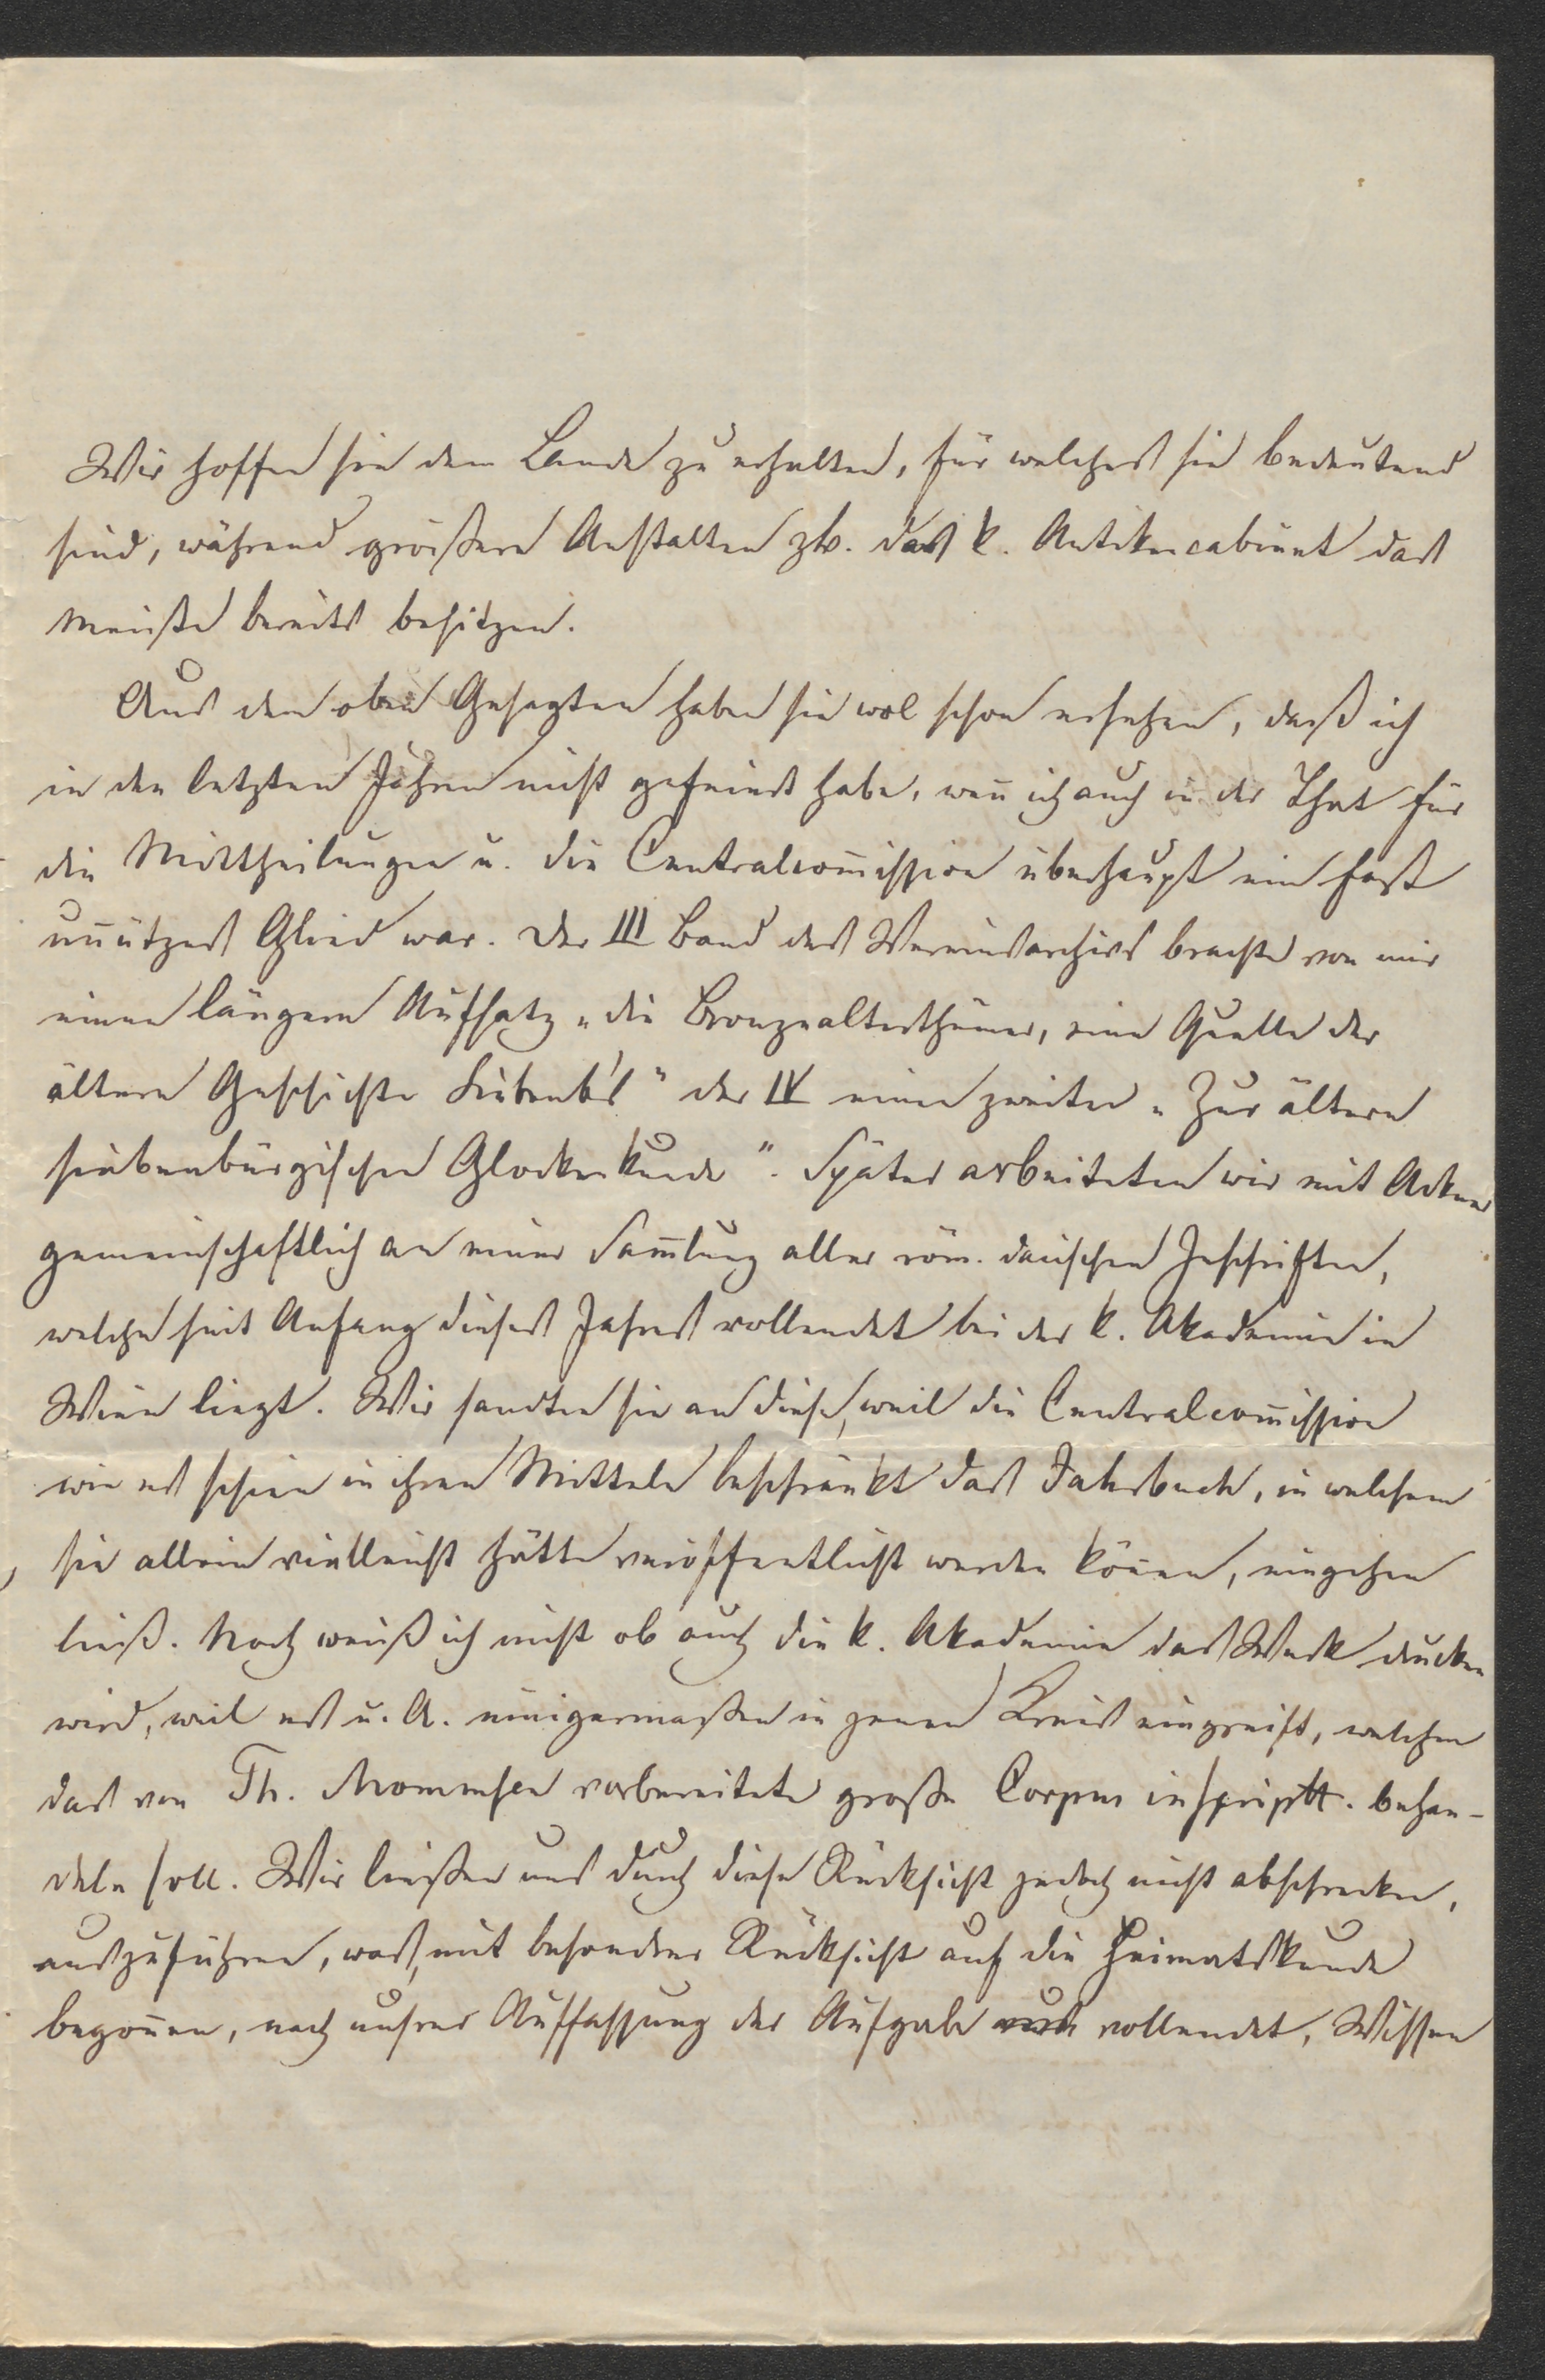 Wir hoffen sie dem Lande zu erhalten, für welches sie bedeutend
sind, während größere Anstalten zb. das k. Antikencabinet das
Meiste bereits besitzen.
Aus dem oben Gesagten haben sie wol schon ersehen, daß ich
in den letzten Jahren nicht gefeiert habe, wen̄ ich auch in der That für
die Mittheilungen u. die Centralcom̄ission überhaupt ein fast
un̄ützes Glied war. Der III Band des Vereinsarchivs brachte von mir
einen längern Aufsatz „die Bronzealterthümer, eine Quelle der
ältern Geschichte Siebenb's" der IV einen zweiten „Zur ältern
siebenbürgischen Glockenkunde". Später arbeiteten wir mit Ackner
gemeinschaftlich an einer Sam̄lung aller röm. dacischen Inschriften,
welche seit Anfang dieses Jahres vollendet bei der k. Akademie in
Wien liegt. Wir sandten sie an diese, weil die Centralcom̄ission
wie es schien in ihren Mitteln beschränkt das Jahrbuch, in welchem
sie allein vielleicht hätte veröffentlicht werden kön̄en, eingehen
ließ. Noch weiß ich nicht ob auch die k. Akademie das Werk drucken
wird, weil es u. A. einigermaßen in jenen Kreis eingreift, welchen
das von Th. Mommsen vorbereitete große Corpus inscriptt. behan-
deln soll. Wir ließen uns durch diese Rücksicht jedoch nicht abschrecken,
auszuführen, was, mit besondrer Rücksicht auf die Heimatskunde
begon̄en, nach unsrer Auffassung der Aufgabe vollendet, Wissen